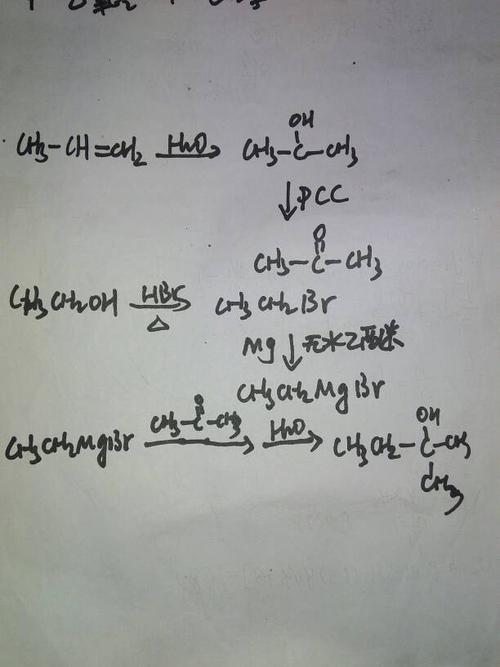 OH
CH3-CH=CH2 H2O CH3-C-CH3
PCC
O
CH3-C-CH3
CH3CH2OH HBr CH3CH2Br
△
Mg 无水乙醚
CH3CH2MgBr
O
CH3CH2MgBr CH3-C-CH3 H2O CH3CH2-C-CH3
OH
CH3